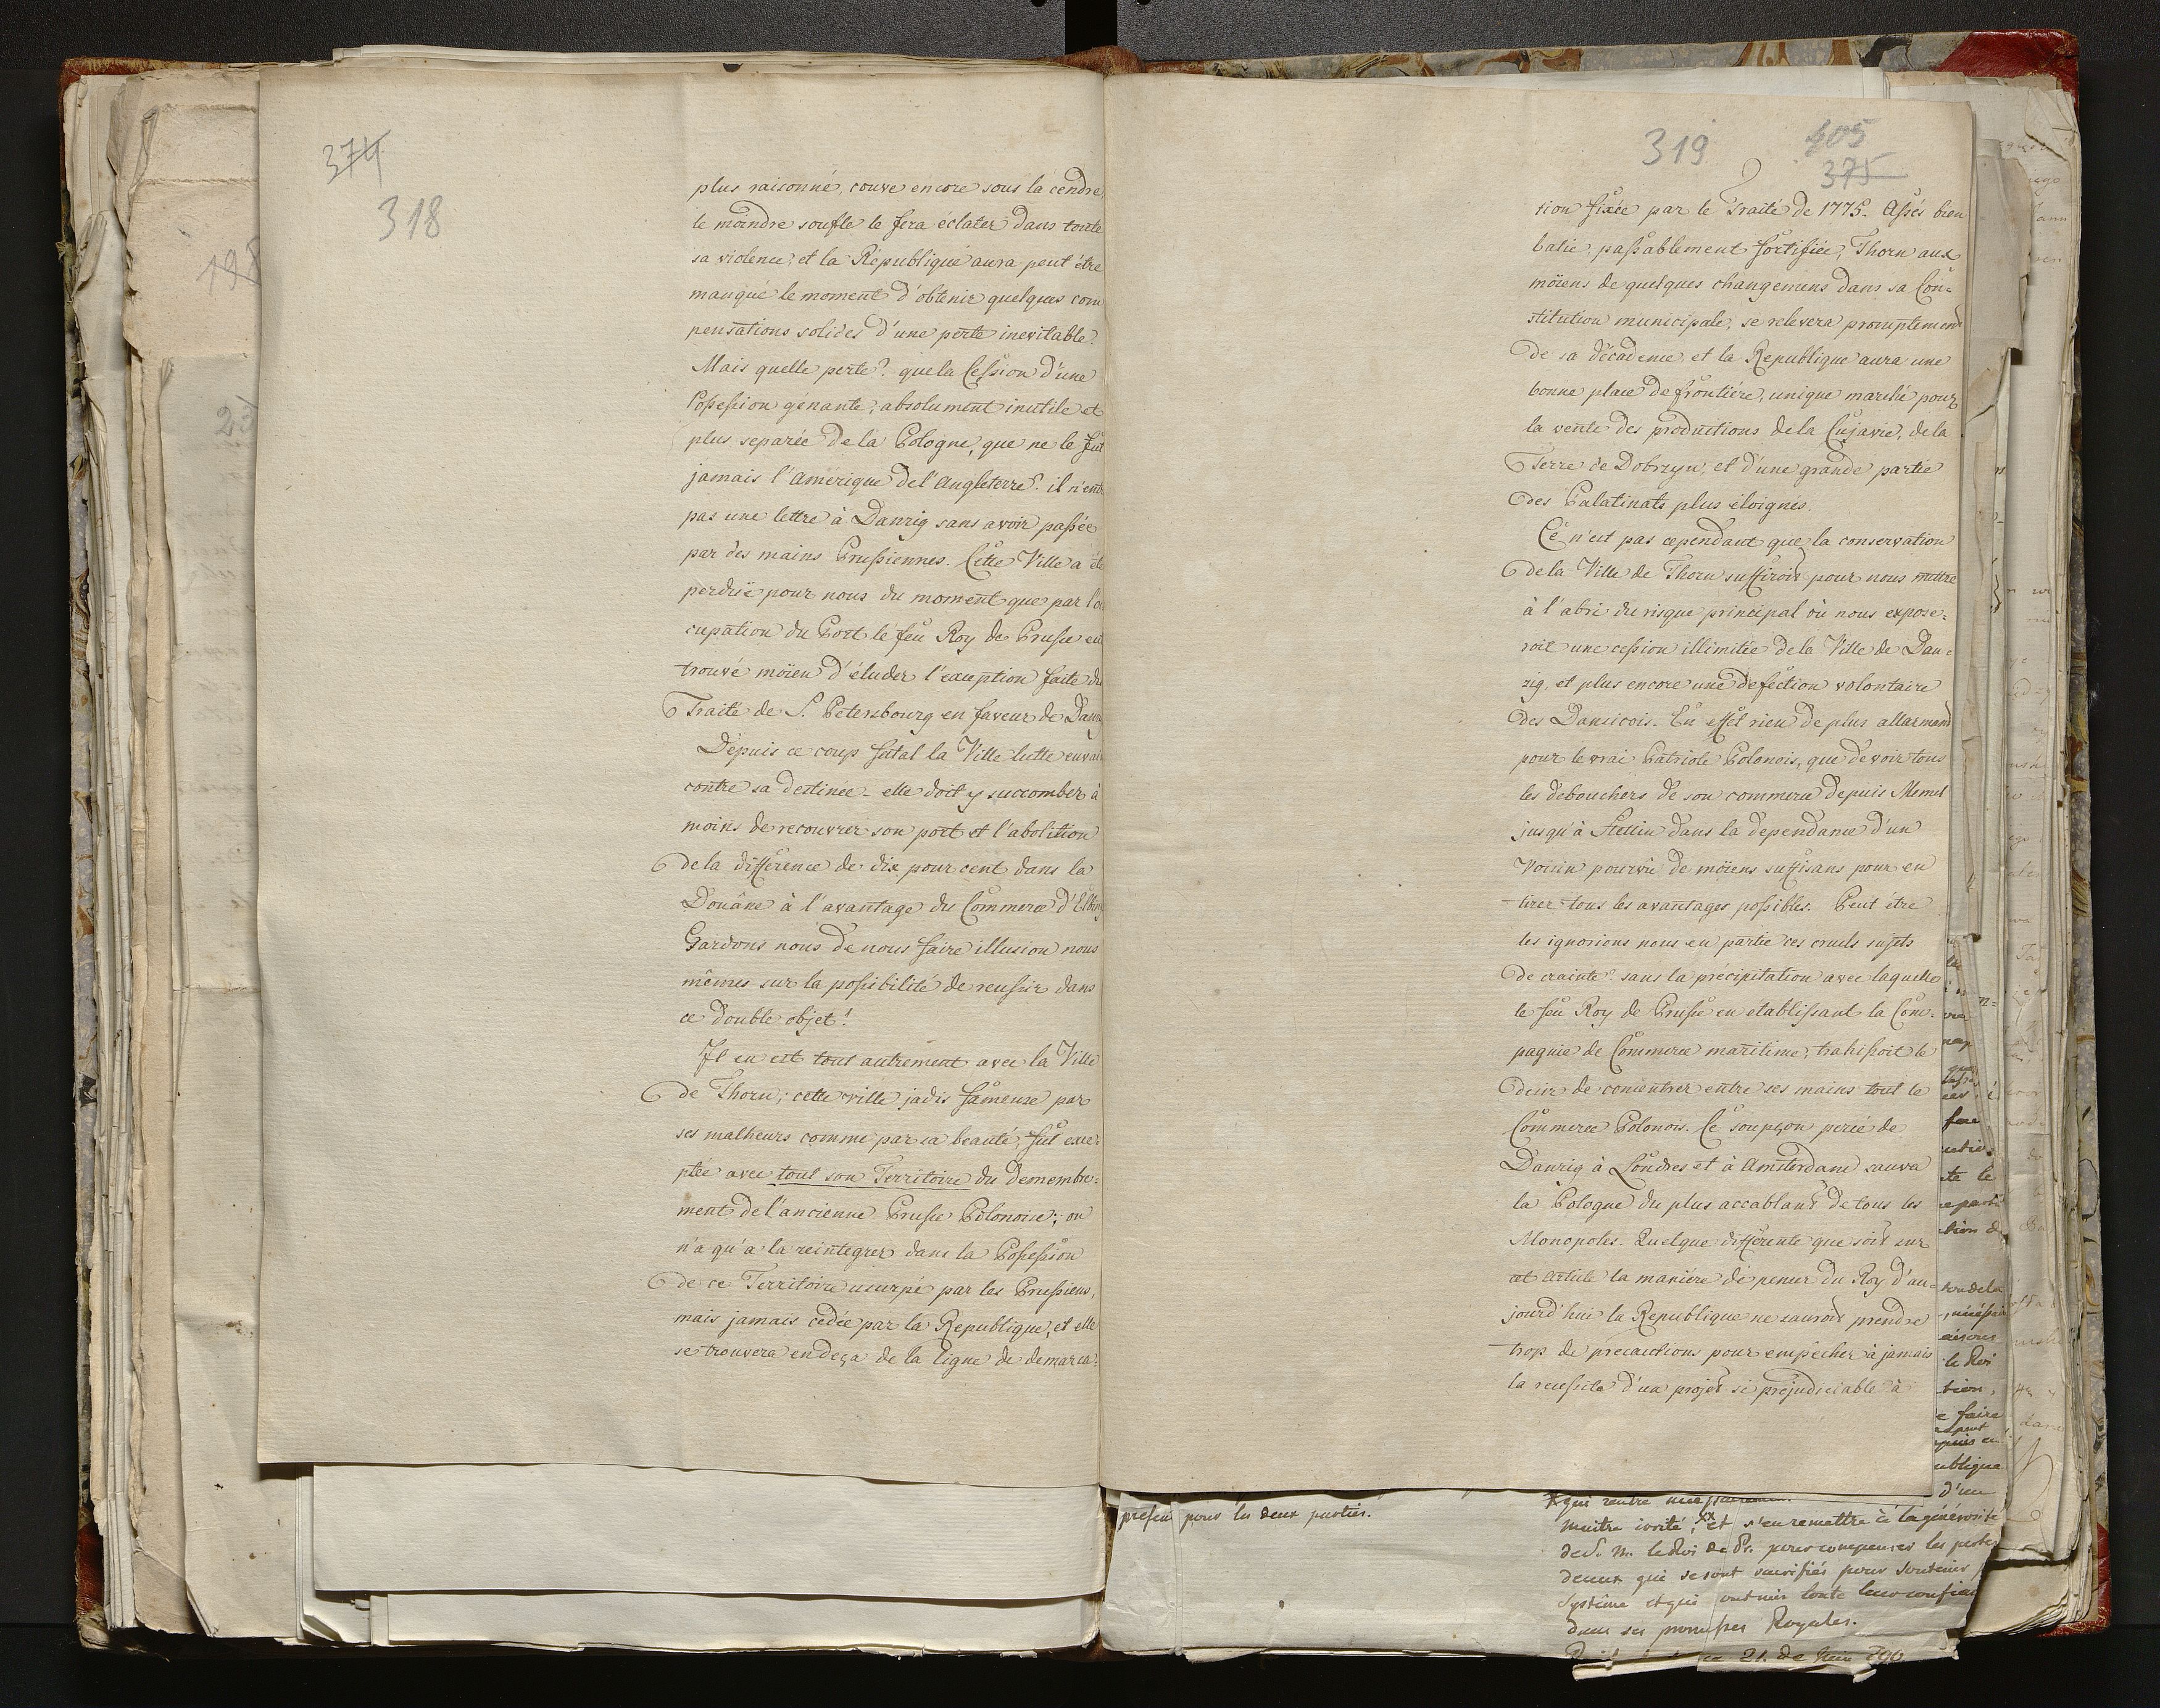 374
318
plus raisonné, couve encore sous la cendre,
le moindre soufle le fera éclater dans toute
sa violence, et la République aura peut être
manqué le moment d'obtenir quelques com
pensations solides d'une perte inevitable.
Mais quelle perte? que la Cession d'une
Possession génante, absolument inutile et
plus separée de la Pologne, que ne le fut
jamais l'Amérique de l'Angleterre. il n'ent
pas une lettre à Danzig sans avoir passée
par des mains Prussiennes. Cette Ville a été
perduë pour nous du moment que par l'oc
cupation du Port le feu Roy de Prusse eut
trouvé moïen d'éluder l'exception faite du
Traité de S. Petersbourg en faveur de Danz
Depuis ce coup fatal la Ville lutte en vain
contre sa destinée - elle doit y succomber à
moins de recouvrer son port et l'abolition
de la différence de dix pour cent dans la
Douâne à l'avantage du Commerce d'Elbing
Gardons nous de nous faire illusion nous
mêmes sur la possibilité de reussir dans
ce double objet!
Il en est tout autrement avec la Ville
de Thorn; cette ville jadis fameuse par
ses malheurs comme par sa beauté, fut exce-
ptée avec tout son Territoire du demembre-
ment de l'ancienne Prusse Polonoise; on
n'a qu'a la reintegrer dans la Possession
de ce Territoire usurpé par les Prussiens,
mais jamais cedée par la Republique, et elle
se trouvera en deça de la ligne de demarca-
319
405
375
tion fixée par le Traité de 1775. Assés bien
batie, passablement fortifiée, Thorn aux
moïens de quelques changemens dans sa Con-
stitution municipale, se relevera promptement
de sa décadence, et la Republique aura une
bonne place de frontiére, unique marché pour
la vente des productions de la Cujavie, de la
Terre de Dobrzyn, et d'une grande partie
des Palatinats plus éloignés.
Ce n'est pas cependant que la conservation
de la Ville de Thorn suffiroit pour nous mettre
à l'abri du risque principal où nous expose-
roit une cession illimitée de la Ville de Dan-
zig, et plus encore une defection volontaire
des Danzicois. En effet rien de plus allarmant
pour le vrai Patriote Polonois, que de voir tous
les debouchers de son commerce depuis Memel
jusqu'à Stettin dans la dependance d'un
Voisin pourvû de moïens suffisans pour en
tirer tous les avantages possibles. Peut être
les ignorions nous en partie ces cruels sujets
de crainte? sans la précipitation avec laquelle
le feu Roy de Prusse en établissant la Com-
pagnie de Commerce maritime, trahissoit le
desir de concentrer entre ses mains tout le
Commerce Polonois. Ce soupçon de
Danzig à Londres et à Amsterdam sauva
la Pologne du plus accablant de tous les
Monopoles. Quelque differente que soit sur
cet article la maniére de penser du Roy d'au-
jourd'hui la Republique ne sauroit prendre
trop de precautions pour empêcher à jamais
la reussite d'un projet si préjudiciable à
pour les deux parties.
qui rentre
et s'en remettre à la générosité
de S. M. le Roi de Pr. pour compenser les pertes
de ceux qui se sont sacrifiés pour soutenir
Système et qui ont mis toute leur confian
dans ses promesses Royales.